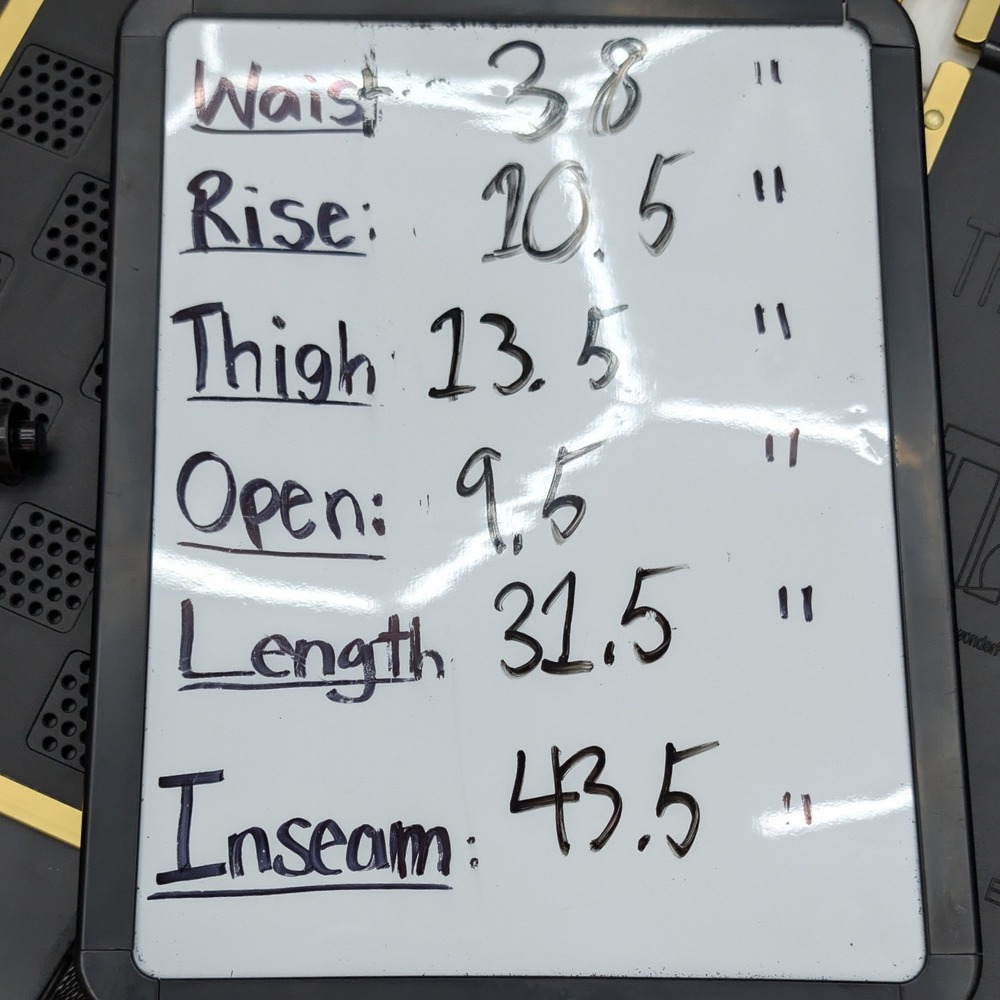 Waist: 38 "
Rise: 10.5 "
Thigh: 13.5 "
Open: 9.5 "
Length: 31.5 "
Inseam: 43.5 "